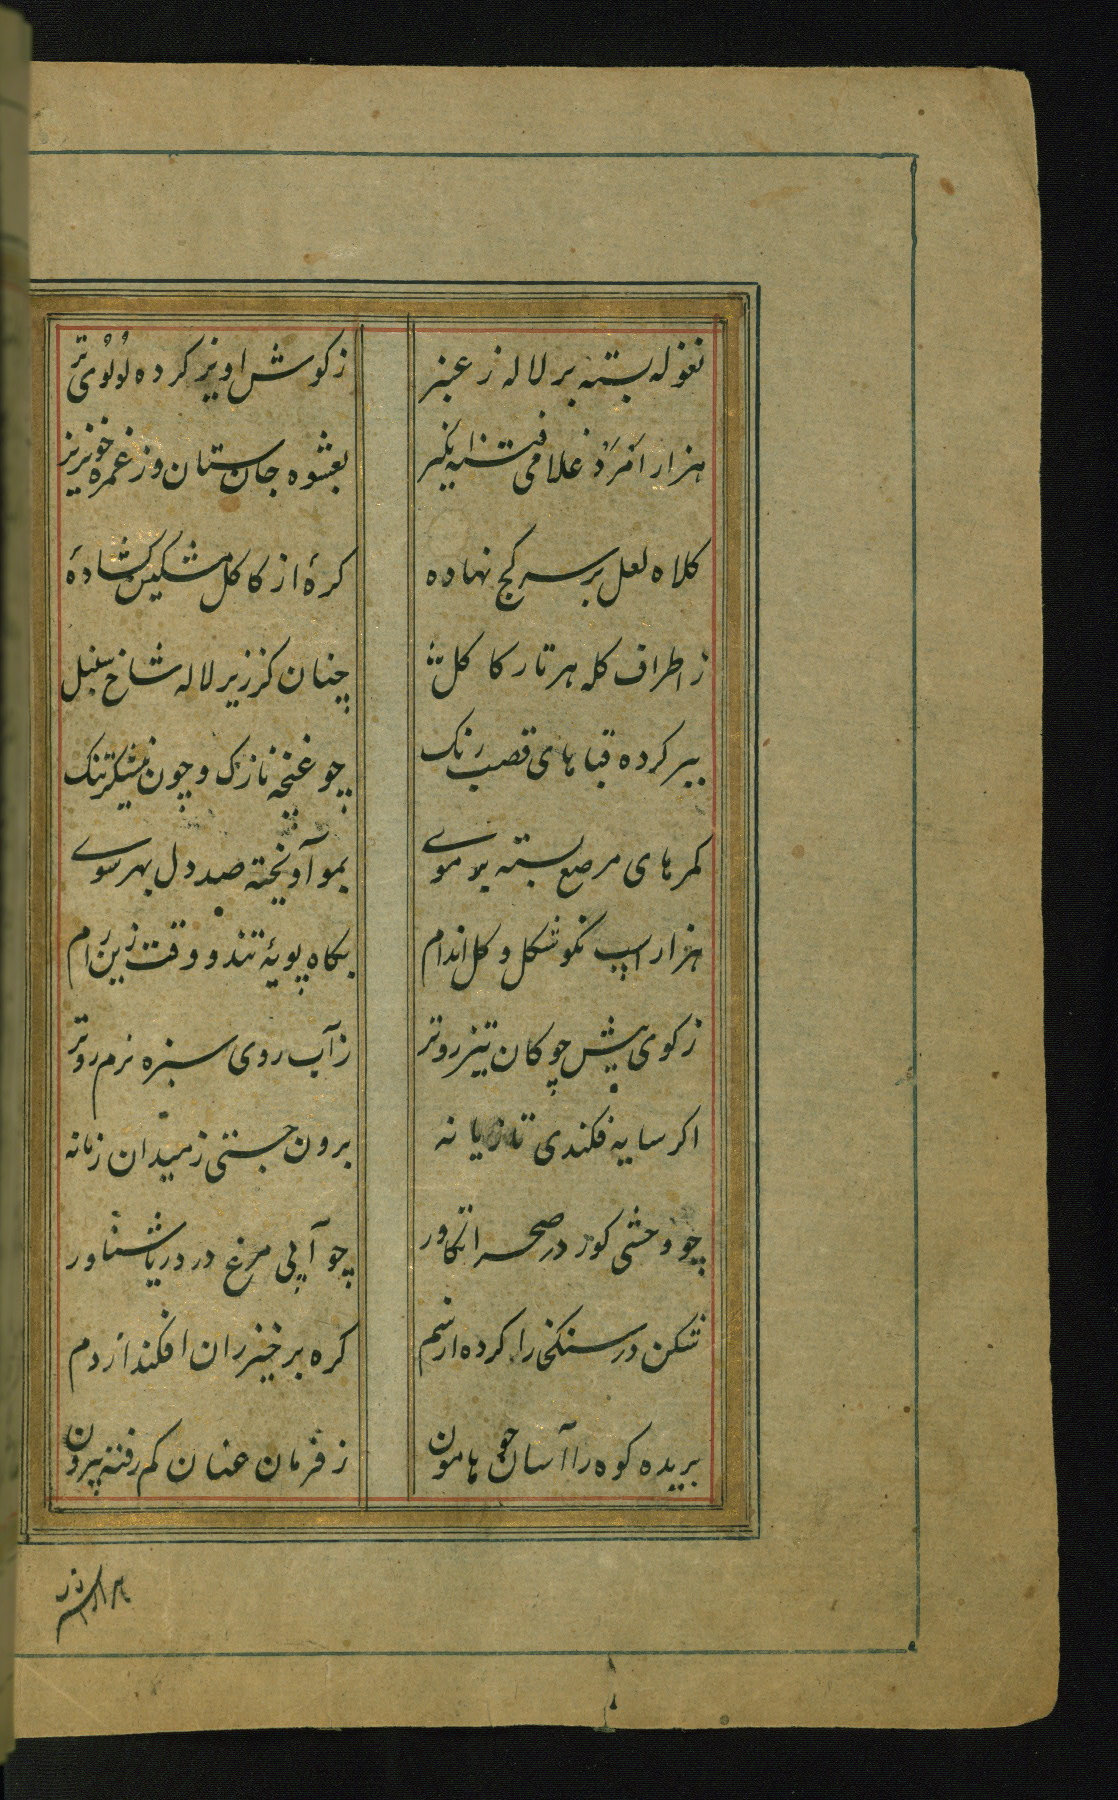 نغوله بسته بر لاله ز عنبر
زکوش اویز کرده لولوی تر
هزار امرد غلامی فتنه انکیز
بعشوه جان ستان وز غمزه خونریز
کلاه لعل بر سر کج نهاده
کرهٔ از کاکل مشکین کشادهٔ
ز اطراف کله هر تار کاکل
چنان کز زیر لاله شاخ سنبل
ببر کرده قباهای قصب رنک
چو غنچه نازک و چون نیشکر تنک
کمرهای مرصع بسته بر موی
بمو آویخته صد دل بهر سوی
هزار اسپ نکو شکل و کل اندام
بکاه پویهٔ تند و وقت زین رام
ز کوی پیش چوکان تیز روتر
ز آب روی سبزه نرم روتر
اکر سایه فکندی تازیانه
برون جستی ز میدان زمانه
چو وحشی کور در صحرا تکاور
چو آبی مرغ در دریا شناور
شکن در سنک خارا کرده از سم
کره بر خیزران افکند از دم
بریده کوه را آسان چو هامون
ز فرمان عنان کم رفته بیرون
هزار استر